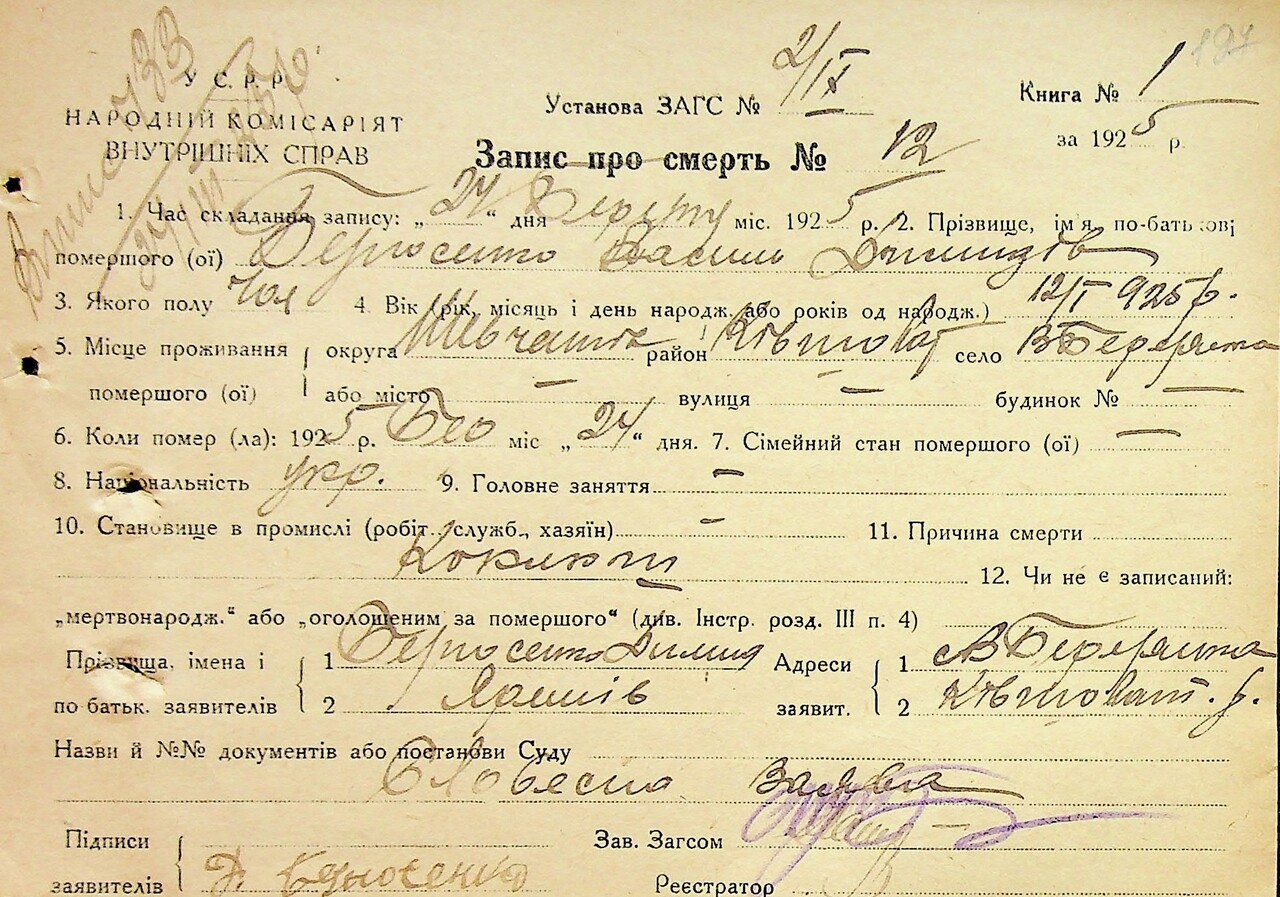 197
У С. Р. Р.
НАРОДНІЙ КОМІСАРІЯТ
ВНУТРІШНІХ СПРАВ
Установа ЗАГС № 2/IX
Книга № 1
за 1925 р.
Запис про смерть № 12
1. Час складання запису: „24“ дня міс. 1925 р. 2. Прізвище, ім'я по-батькові
помершого (ої) Василь
3. Якого полу Чол 4. Вік (рік, місяць і день народж. або років од народж.) 12/I 925 р.
5. Місце проживання округа район село
помершого (ої) або місто — вулиця — будинок № —
6. Коли помер (ла): 1925 р. міс „24“ дня. 7. Сімейний стан помершого (ої) —
8. Національність укр. 9. Головне заняття —
10. Становище в промислі (робіт., служб., хазяїн) — 11. Причина смерти
Коклюш 12. Чи не є записаний:
„мертвонародж.“ або „оголошеним за помершого“ (див. Інстр. розд. III п. 4)
Прізвища, імена і 1 Адреси 1
по батьк. заявителів 2 заявит. 2
Назви й №№ документів або постанови Суду
Словесна заява
Підписи Зав. Загсом
заявителів Д. Реєстратор